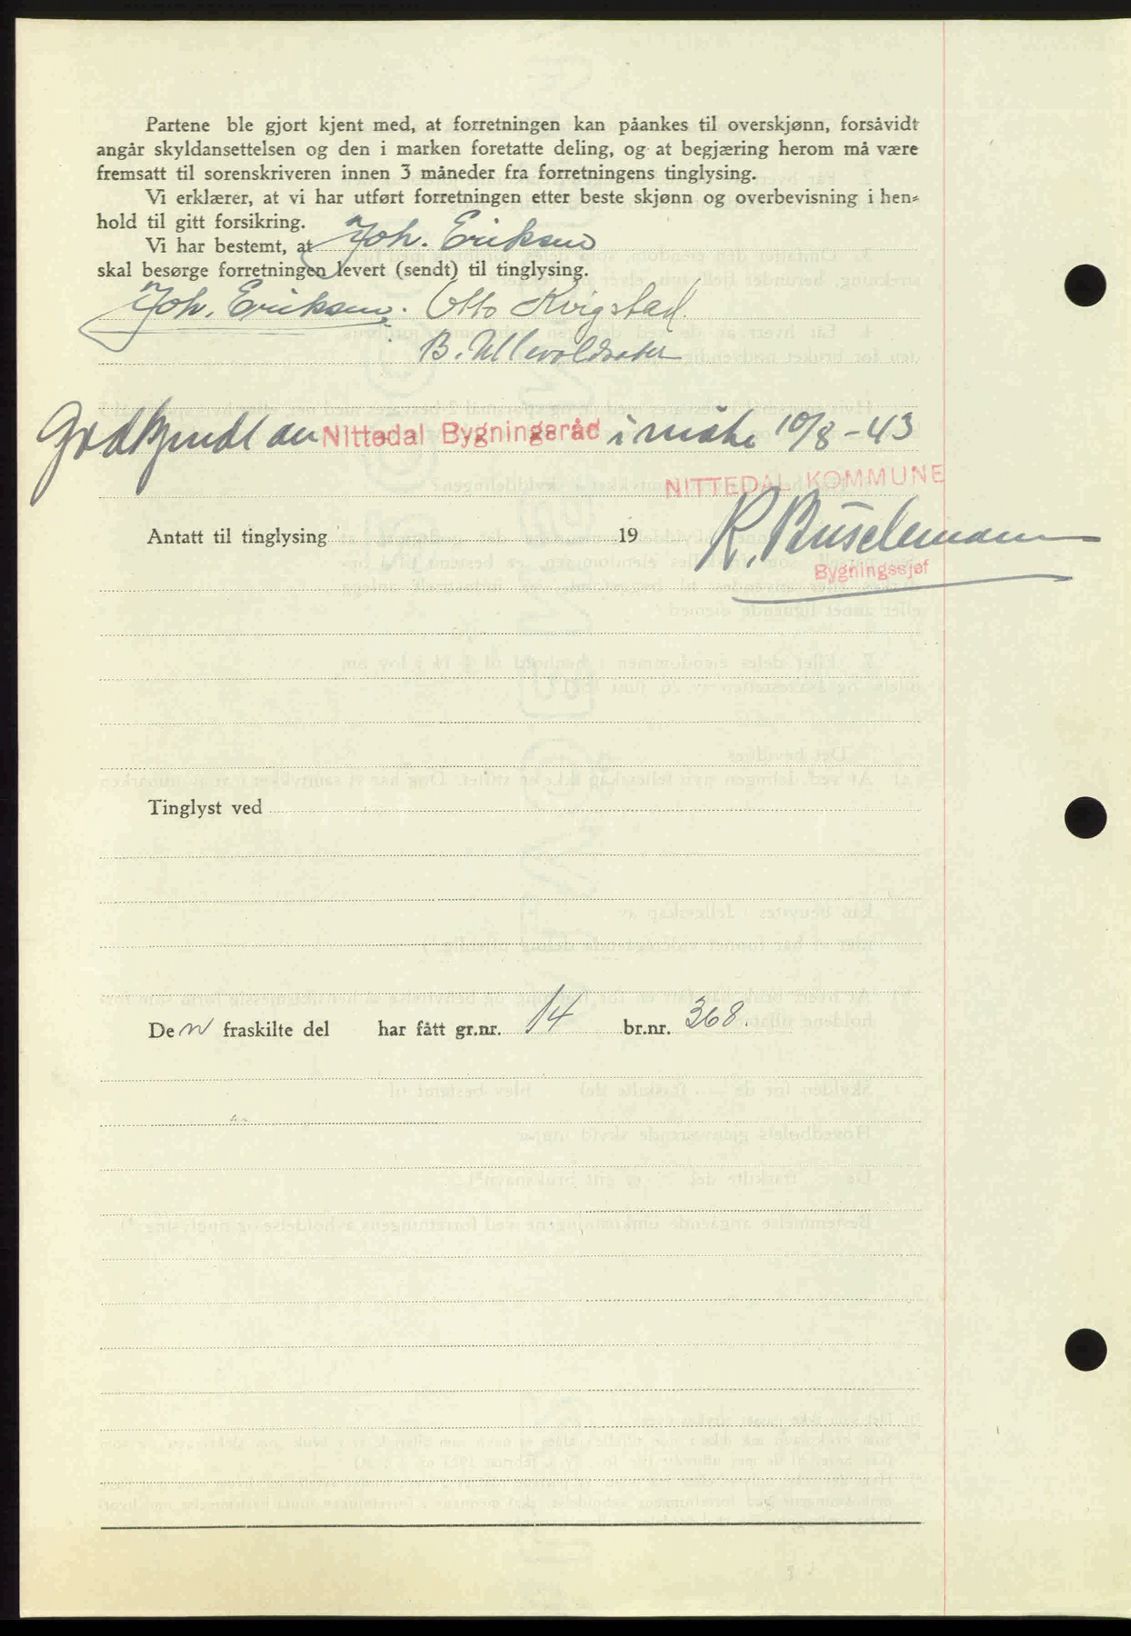 Partene ble gjort kjent med, at forretningen kan påankes til overskjønn, forsåvidt
angår skyldansettelsen og den i marken foretatte deling, og at begjæring herom må være
fremsatt til sorenskriveren innen 3 måneder fra forretningens tinglysing.
Vi erklærer, at vi har utført forretningen etter beste skjønn og overbevisning i hen-
hold til gitt forsikring.
Vi har bestemt, at Joh. Eriksen
skal besørge forretningen levert (sendt) til tinglysing.
Joh. Eriksen. Otto Kvigstad.
B. Ullevoldsæter
Godkjendt av Nittedal Bygningsråd i møte 10/8-43
NITTEDAL KOMMUNE
Antatt til tinglysing 19
Bygningssjef
Tinglyst ved
Den fraskilte del har fått gr.nr. 14 br.nr. 368.